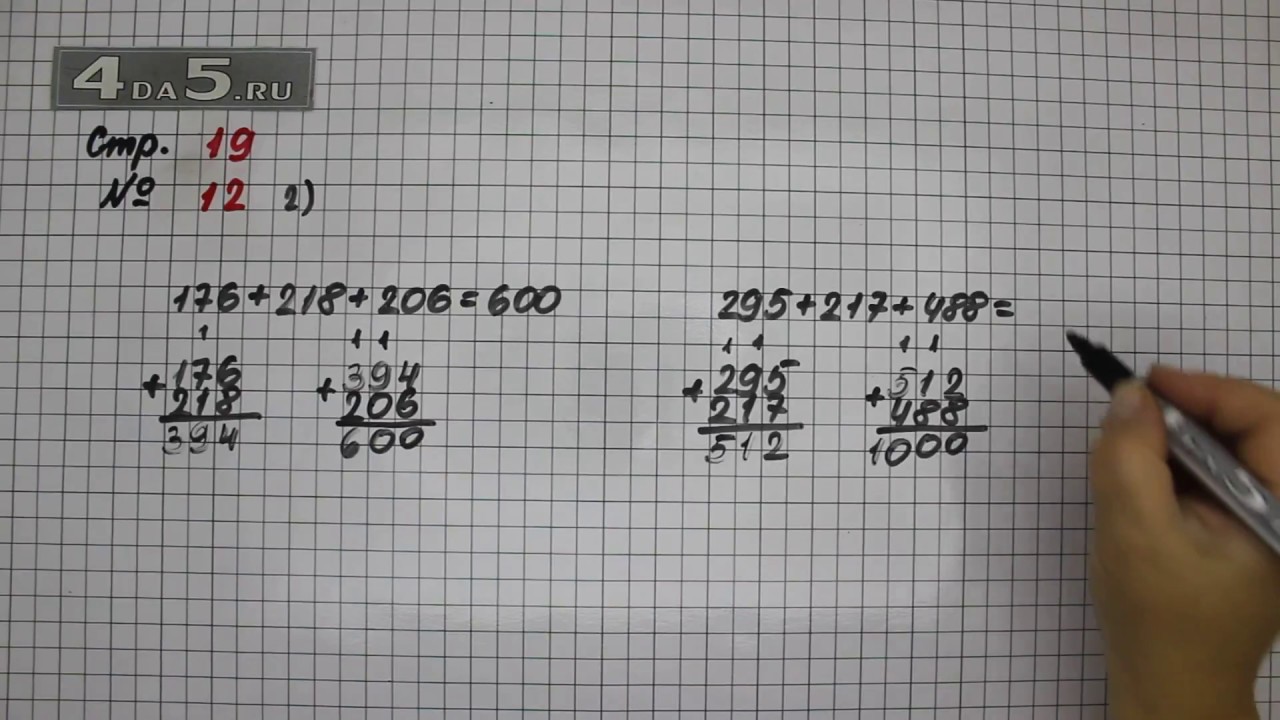 4DA5.RU
Стр. 19
№ 12 2)
176+218+206=600
1
+176
218
394
1 1
+394
206
600
295+217+488=
1 1
+295
217
512
1 1
+512
488
1000